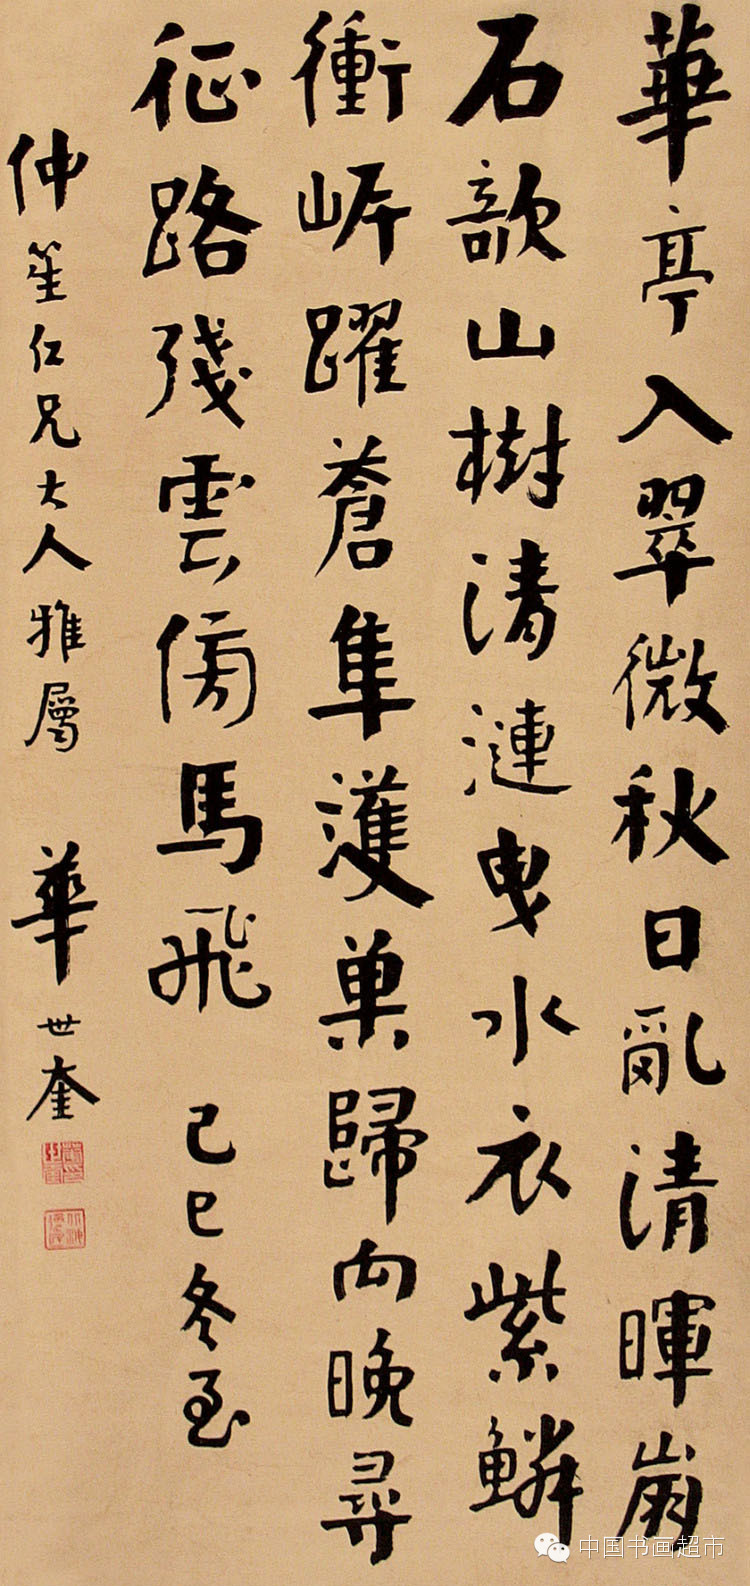 華亭入翠微秋日亂清暉崩
石歌山樹清漣曳水衣紫鱗
衝岸躍蒼隼護巢歸向晚尋
征路殘雲傍馬飛 己巳冬至
仲笙仁兄大人雅屬 華世奎
中国书画超市